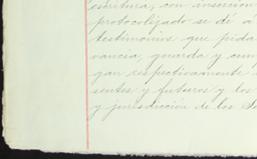 escritura, con inserción
protocolizado se dé á
testimonios que pida
vancia, guarda y cum
gan respectivamente
sentes y futuros y los
y jurisdicción de los